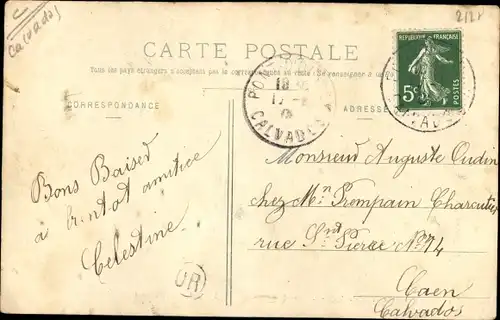 Calvados
2/21
CARTE POSTALE
Tous les pays étrangers n'acceptent pas la correspondance au recto
CORRESPONDANCE
ADRESSE
REPUBLIQUE FRANÇAISE
5c
POSTES
CALVADOS
Bons Baiser
à bientot amitiée
Celestine
OR
Monsieur Auguste Oudin
chez Mn Prempain Charcutier
rue St Pierre No 74
Caen
Calvados